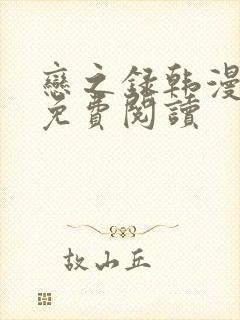 戀之録韩漫
免費閱讀
故山丘